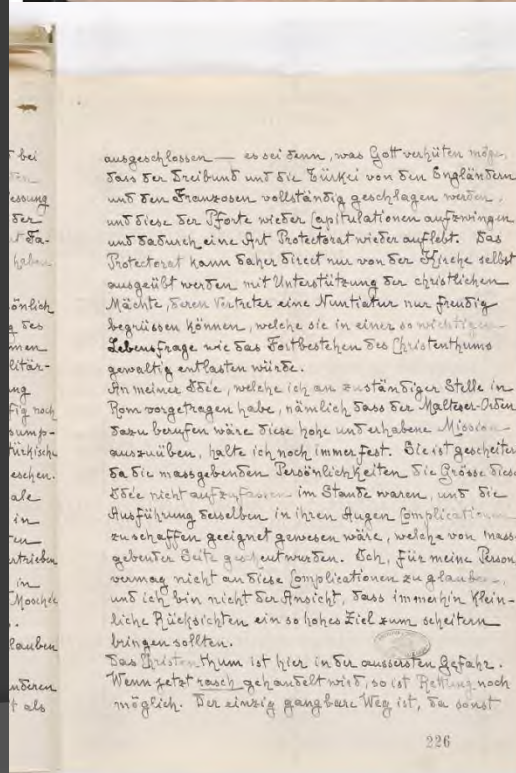 bei
essung
der
haben
önlich
des
litär-
ng
noch
türkische
ale
in
ertrieben
in
Moschee
lauben
nderen
als
ausgeschlossen — es sei denn, was Gott verhüten möge,
dass der Dreibund und die Türkei von den Engländern
und den Franzosen vollständig geschlagen werden,
und diese der Pforte wieder Capitulationen aufzwingen
und dadurch eine Art Protectorat wieder auflebt. Das
Protectorat kann daher direct nur von der Kirche selbst
ausgeübt werden mit Unterstützung der christlichen
Mächte, deren Vertreter eine Nuntiatur nur freudig
begrüssen können, welche sie in einer so wichtigen
Lebensfrage wie das Fortbestehen des Christenthums
gewaltig entlasten würde.
An meiner Idée, welche ich an zuständiger Stelle in
Rom vorgetragen habe, nämlich dass der Malteser-Orden
dazu berufen wäre diese hohe und erhabene Mission
auszuüben, halte ich noch immer fest. Sie ist gescheitert
da die massgebenden Persönlichkeiten die Grösse dieser
Idée nicht aufzufassen im Stande waren, und die
Ausführung derselben in ihren Augen Complicationen
zu schaffen geeignet gewesen wäre, welche von mass-
gebender Seite gescheut wurden. Ich, für meine Person
vermag nicht an diese Complicationen zu glauben,
und ich bin nicht der Ansicht, dass immerhin klein-
liche Rücksichten ein so hohes Ziel zum scheitern
bringen sollten.
Das Christenthum ist hier in der aussersten Gefahr.
Wenn jetzt rasch gehandelt wird, so ist Rettung noch
möglich. Der einzig gangbare Weg ist, da sonst
226